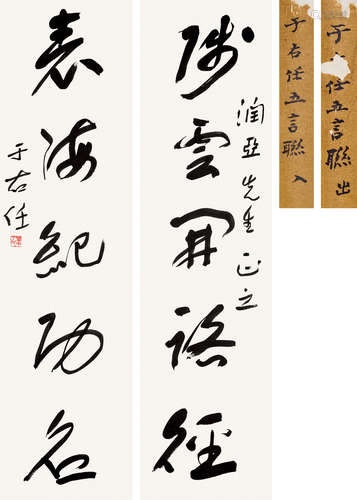 于任五言聯 出
于右任五言聯 入
潤亞先生正之
雲開路徑
表海紀功名
于右任